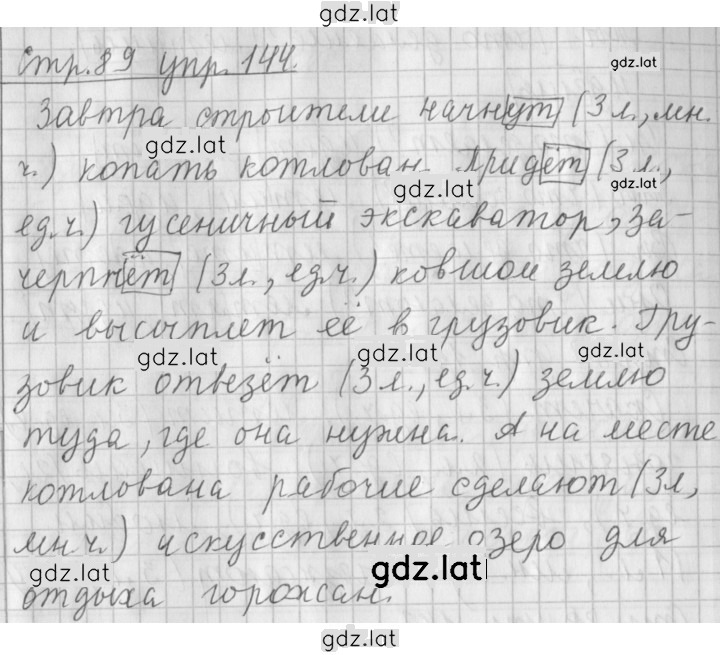 gdz.lat
стр. 89 упр. 144.
gdz.lat
Завтра строители начнут (3 л., мн.
gdz.lat
gdz.lat
ч.) копать котлован. Придёт (3 л.,
gdz.lat
gdz.lat
ед.ч.) гусеничный экскаватор, за-
черпнёт (3 л., ед.ч.) ковшом землю
и высыплет её в грузовик. Гру-
gdz.lat
gdz.lat
gdz.lat
зовик отвезёт (3 л., ед.ч.) землю
туда, где она нужна. А на месте
котлована рабочие сделают (3 л,
мн ч.) искусственное озеро для
gdz.lat
gdz.lat
отдыха горожан.
gdz.lat